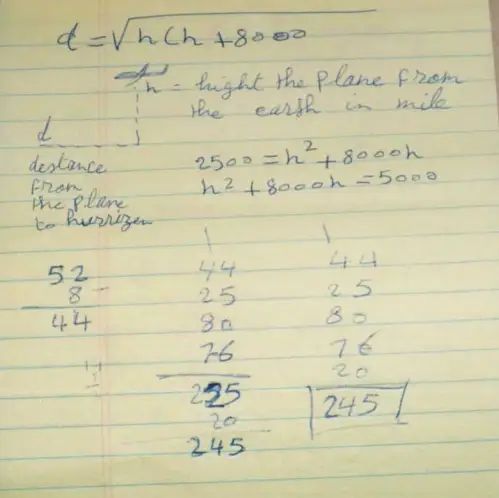 d = √h(h + 8000
h = hight the plane from
the earth in mile
d
destance
from
the plane
to hurrizen
2500 = h² + 8000h
h² + 8000h = 5000
52
8 -
44
44
25
80
76
225
20
245
44
25
80
76
20
245